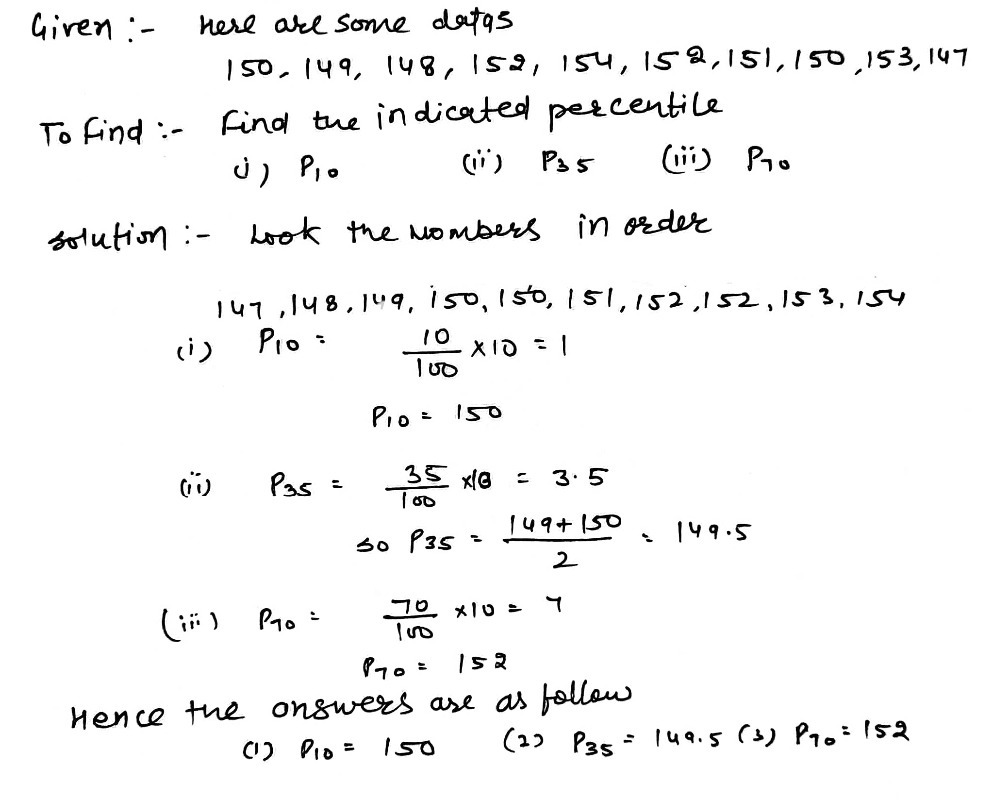 Given :- here are some datas
150, 149, 148, 152, 154, 152, 151, 150, 153, 147
To find :- find the indicated percentile
i) P10 (ii) P35 (iii) P70
solution :- Look the nombers in order
147, 148, 149, 150, 150, 151, 152, 152, 153, 154
(i) P10 = 10/100 × 10 = 1
P10 = 150
(ii) P35 = 35/100 × 10 = 3.5
so P35 = 149+150/2 = 149.5
(iii) P70 = 70/100 × 10 = 7
P70 = 152
Hence the answers are as follow
(1) P10 = 150 (2) P35 = 149.5 (3) P70 = 152